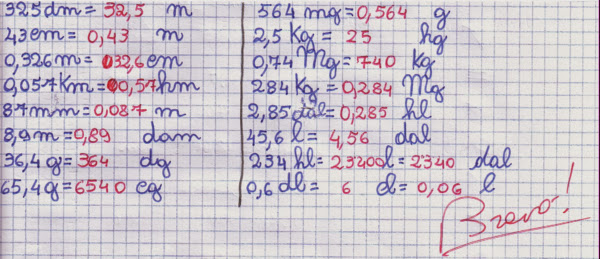 325 dm = 32,5 m
43 cm = 0,43 m
0,326 m = 32,6 cm
0,057 Km = 0,57 hm
87 mm = 0,087 m
8,9 m = 0,89 dam
36,4 g = 364 dg
65,4 g = 6540 cg
564 mg = 0,564 g
2,5 Kg = 25 hg
0,74 Mg = 740 kg
284 Kg = 0,284 Mg
2,85 dal = 0,285 hl
45,6 l = 4,56 dal
234 hl = 23400l = 2340 dal
0,6 dl = 6 cl = 0,06 l
Bravo!